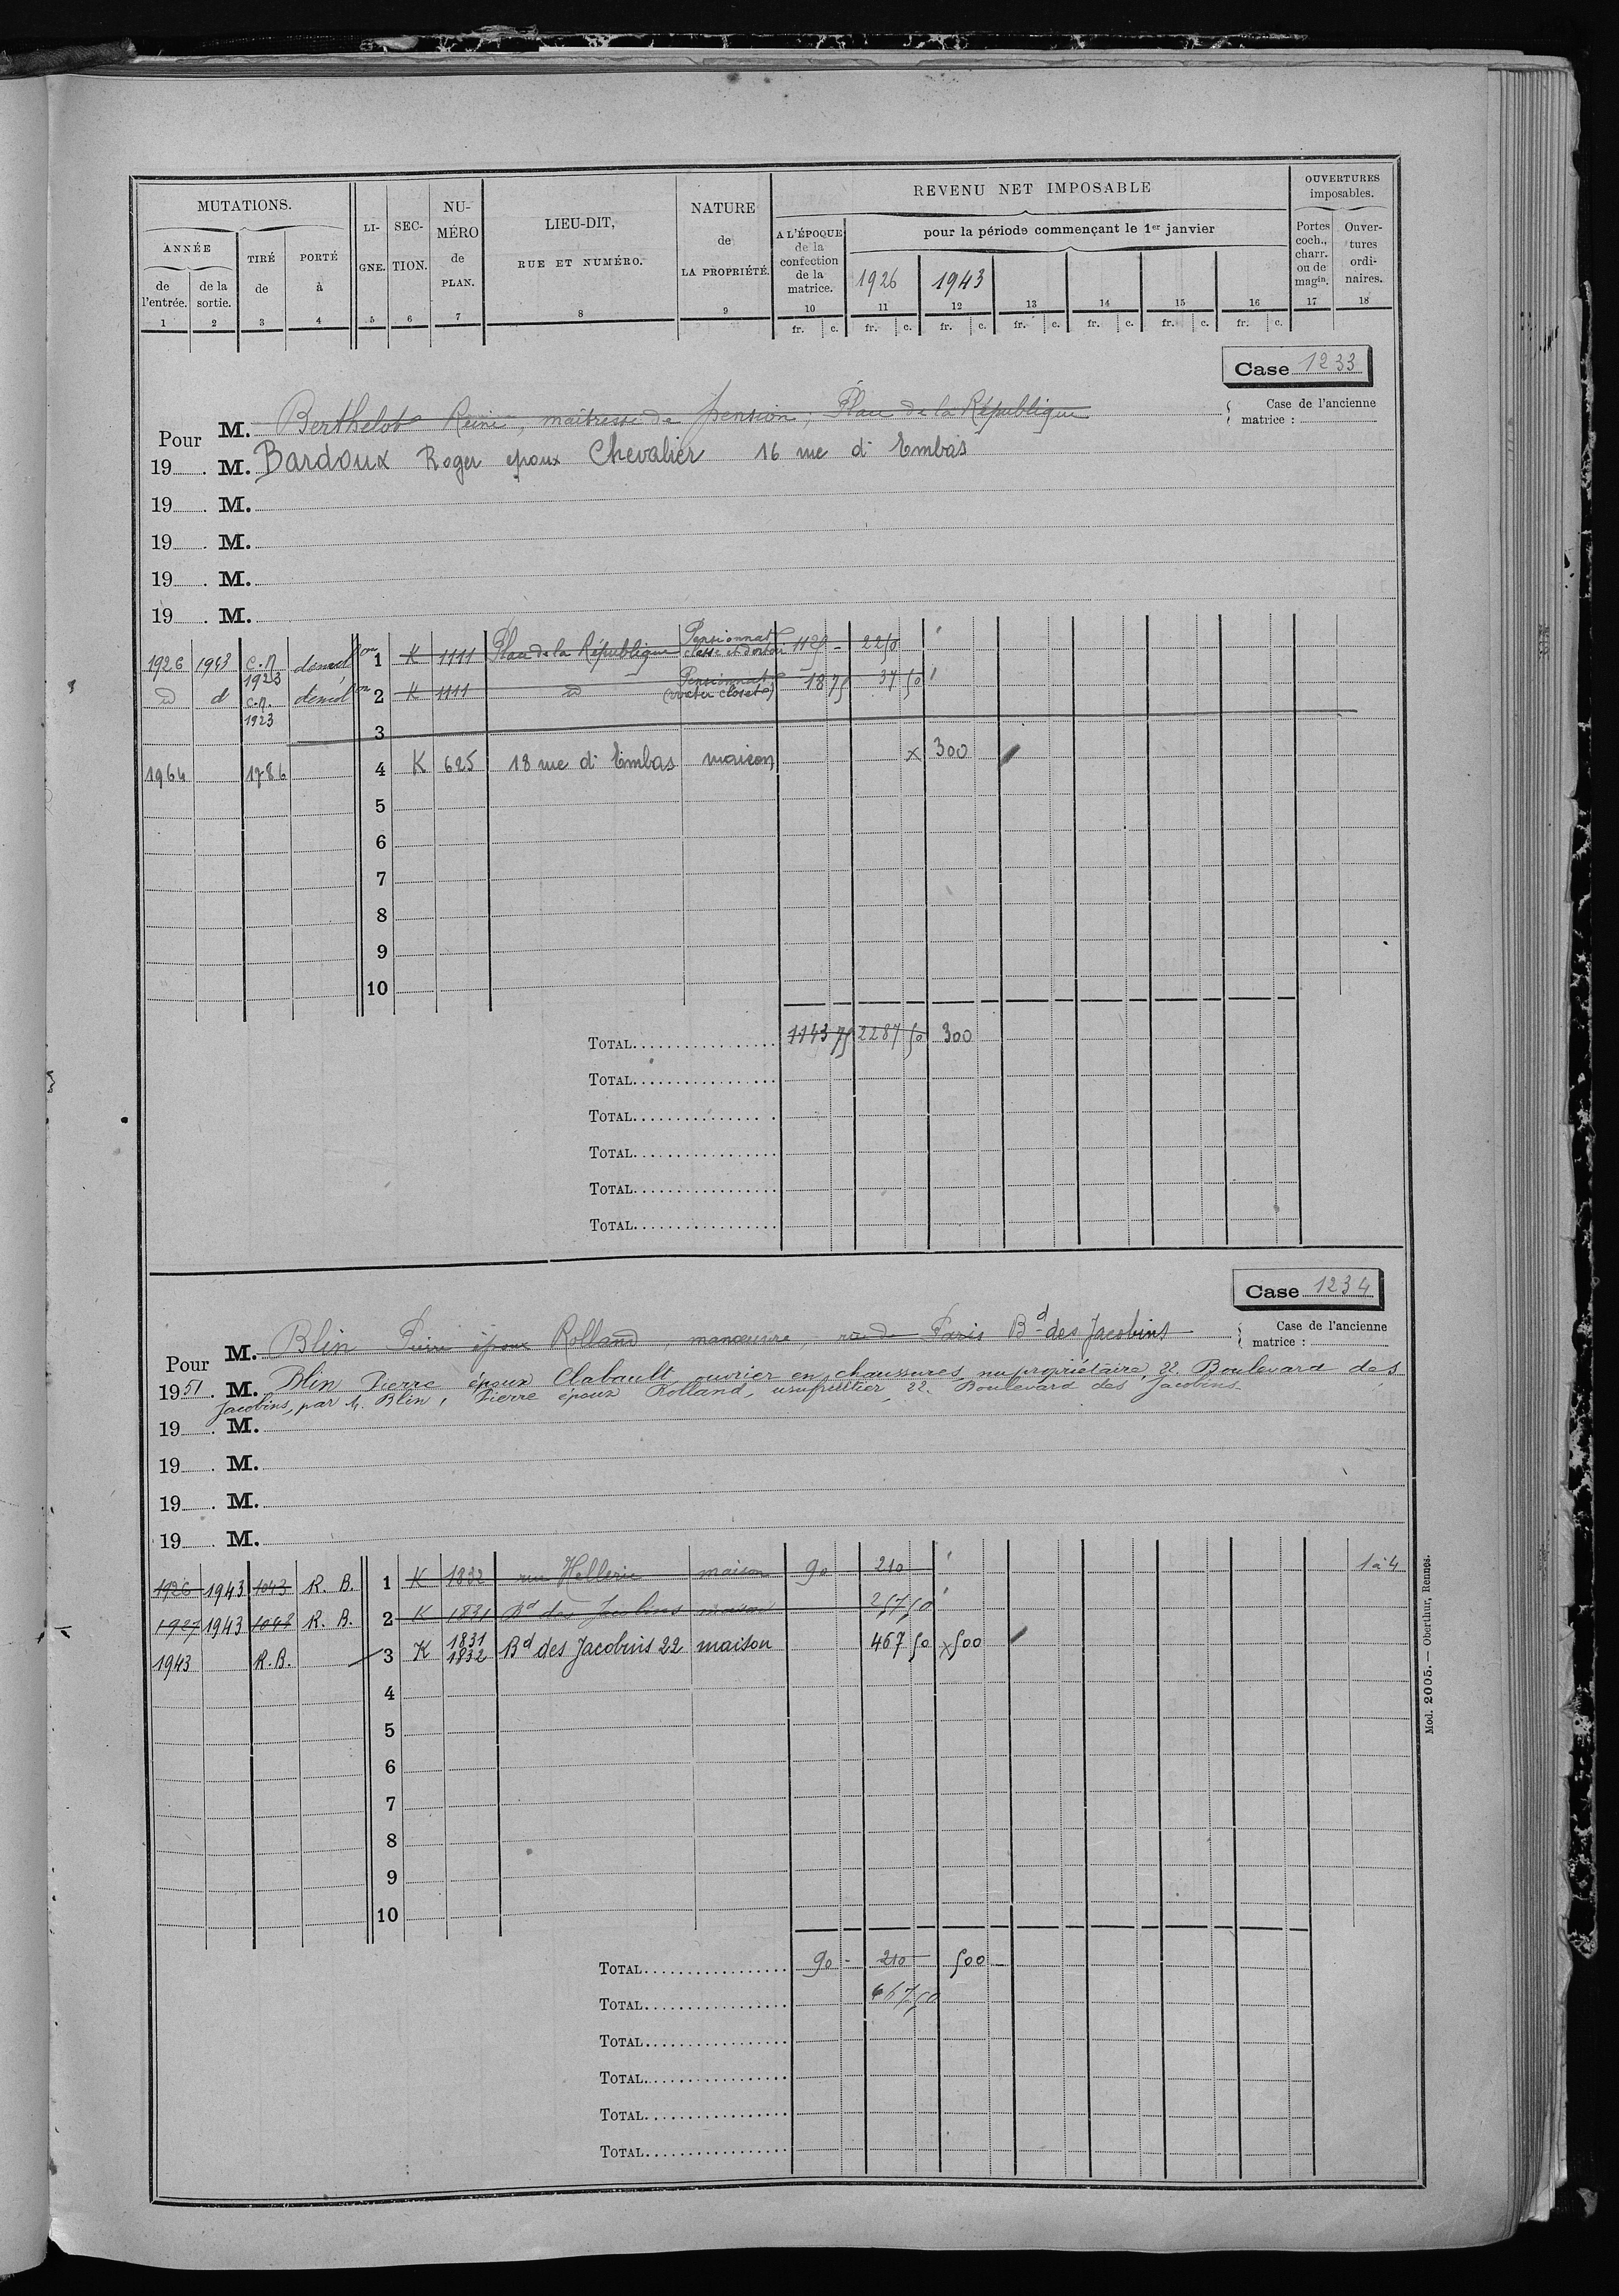 MUTATIONS. LI- SEC- NU- LIEU-DIT, NATURE REVENU NET IMPOSABLE OUVERTURES imposables.
ANNÉE TIRÉ PORTÉ GNE. TION. MÉRO RUE ET NUMÉRO. de A L'ÉPOQUE pour la période commençant le 1er janvier Portes Ouver-
de l'entrée. de la sortie. de à de PLAN. LA PROPRIÉTÉ. de la confection de la matrice. 1926 1943 coch., charr. ou de magin. tures ordi- naires.
1 2 3 4 5 6 7 8 9 10 11 12 13 14 15 16 17 18
fr. c. fr. c. fr. c. fr. c. fr. c. fr. c. fr. c.
Case 1233
Case de l'ancienne matrice :
Pour M. Berthelot Reine, maîtresse de pension, Place de la République
19 . M. Bardoux Roger epoux Chevalier 16 rue d'Embas
19 . M.
19 . M.
19 . M.
19 . M.
1926 1943 C.N 1923 démolon 1 K 1111 Place de la République Pensionnat classe et dortoir 1125 - 2250
d° d° C.N. 1923 démolon 2 K 1111 d° Pensionnat (water closets) 18 75 37 50
3
1964 1786 4 K 625 18 rue d'Embas maison x 300
5
6
7
8
9
10
TOTAL 1143 75 2287 50 300
TOTAL
TOTAL
TOTAL
TOTAL
TOTAL
Case 1234
Case de l'ancienne matrice :
Pour M. Blin Pierre époux Rolland, manœuvre, rue de Paris Bd des Jacobins
1951 . M. Blin Pierre époux Clabault ouvrier en chaussures nu propriétaire, 22 Boulevard des
Jacobins, par M. Blin, Pierre époux Rolland, usufruitier, 22. Boulevard des Jacobins
19 . M.
19 . M.
19 . M.
19 . M.
1926 1943 1043 R. B. 1 K 1832 rue Hellerie maison 90 210 1 à 4
1927 1943 1042 R. B. 2 K 1831 Bd des Jacobins maison 257 50
1943 R.B. 3 K 1831 1832 Bd des Jacobins 22 maison 467 50 x 500
4
5
6
7
8
9
10
TOTAL 90 - 210 500
TOTAL 467 50
TOTAL
TOTAL
TOTAL
TOTAL
Mod. 2005. — Oberthur, Rennes.